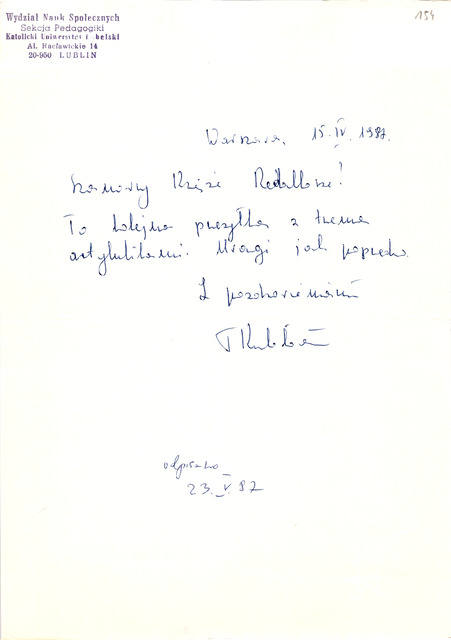 Wydział Nauk Społecznych
Sekcja Pedagogiki
Katolicki Uniwersytet Lubelski
Al. Racławickie 14
20-950 LUBLIN
154
Warszawa, 15.IV.1987.
Szanowny Księże Redaktorze!
To kolejna przesyłka z trzema
artykułami. Uwagi jak poprzednio.
Z pozdrowieniami
odpisano
23.V.87